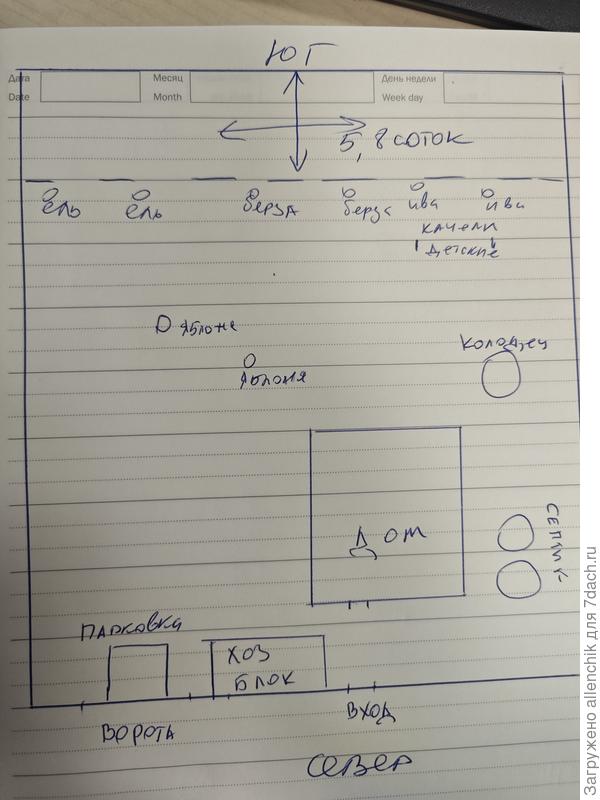 ЮГ
Дата
Date
Месяц
Month
День недели
Week day
5,8 соток
ель
ель
берза
берза
ива
ива
качели
детские
яблоня
яблоня
колодец
Дом
септик
парковка
хоз
блок
ворота
вход
север
Загружено allenchik для 7dach.ru